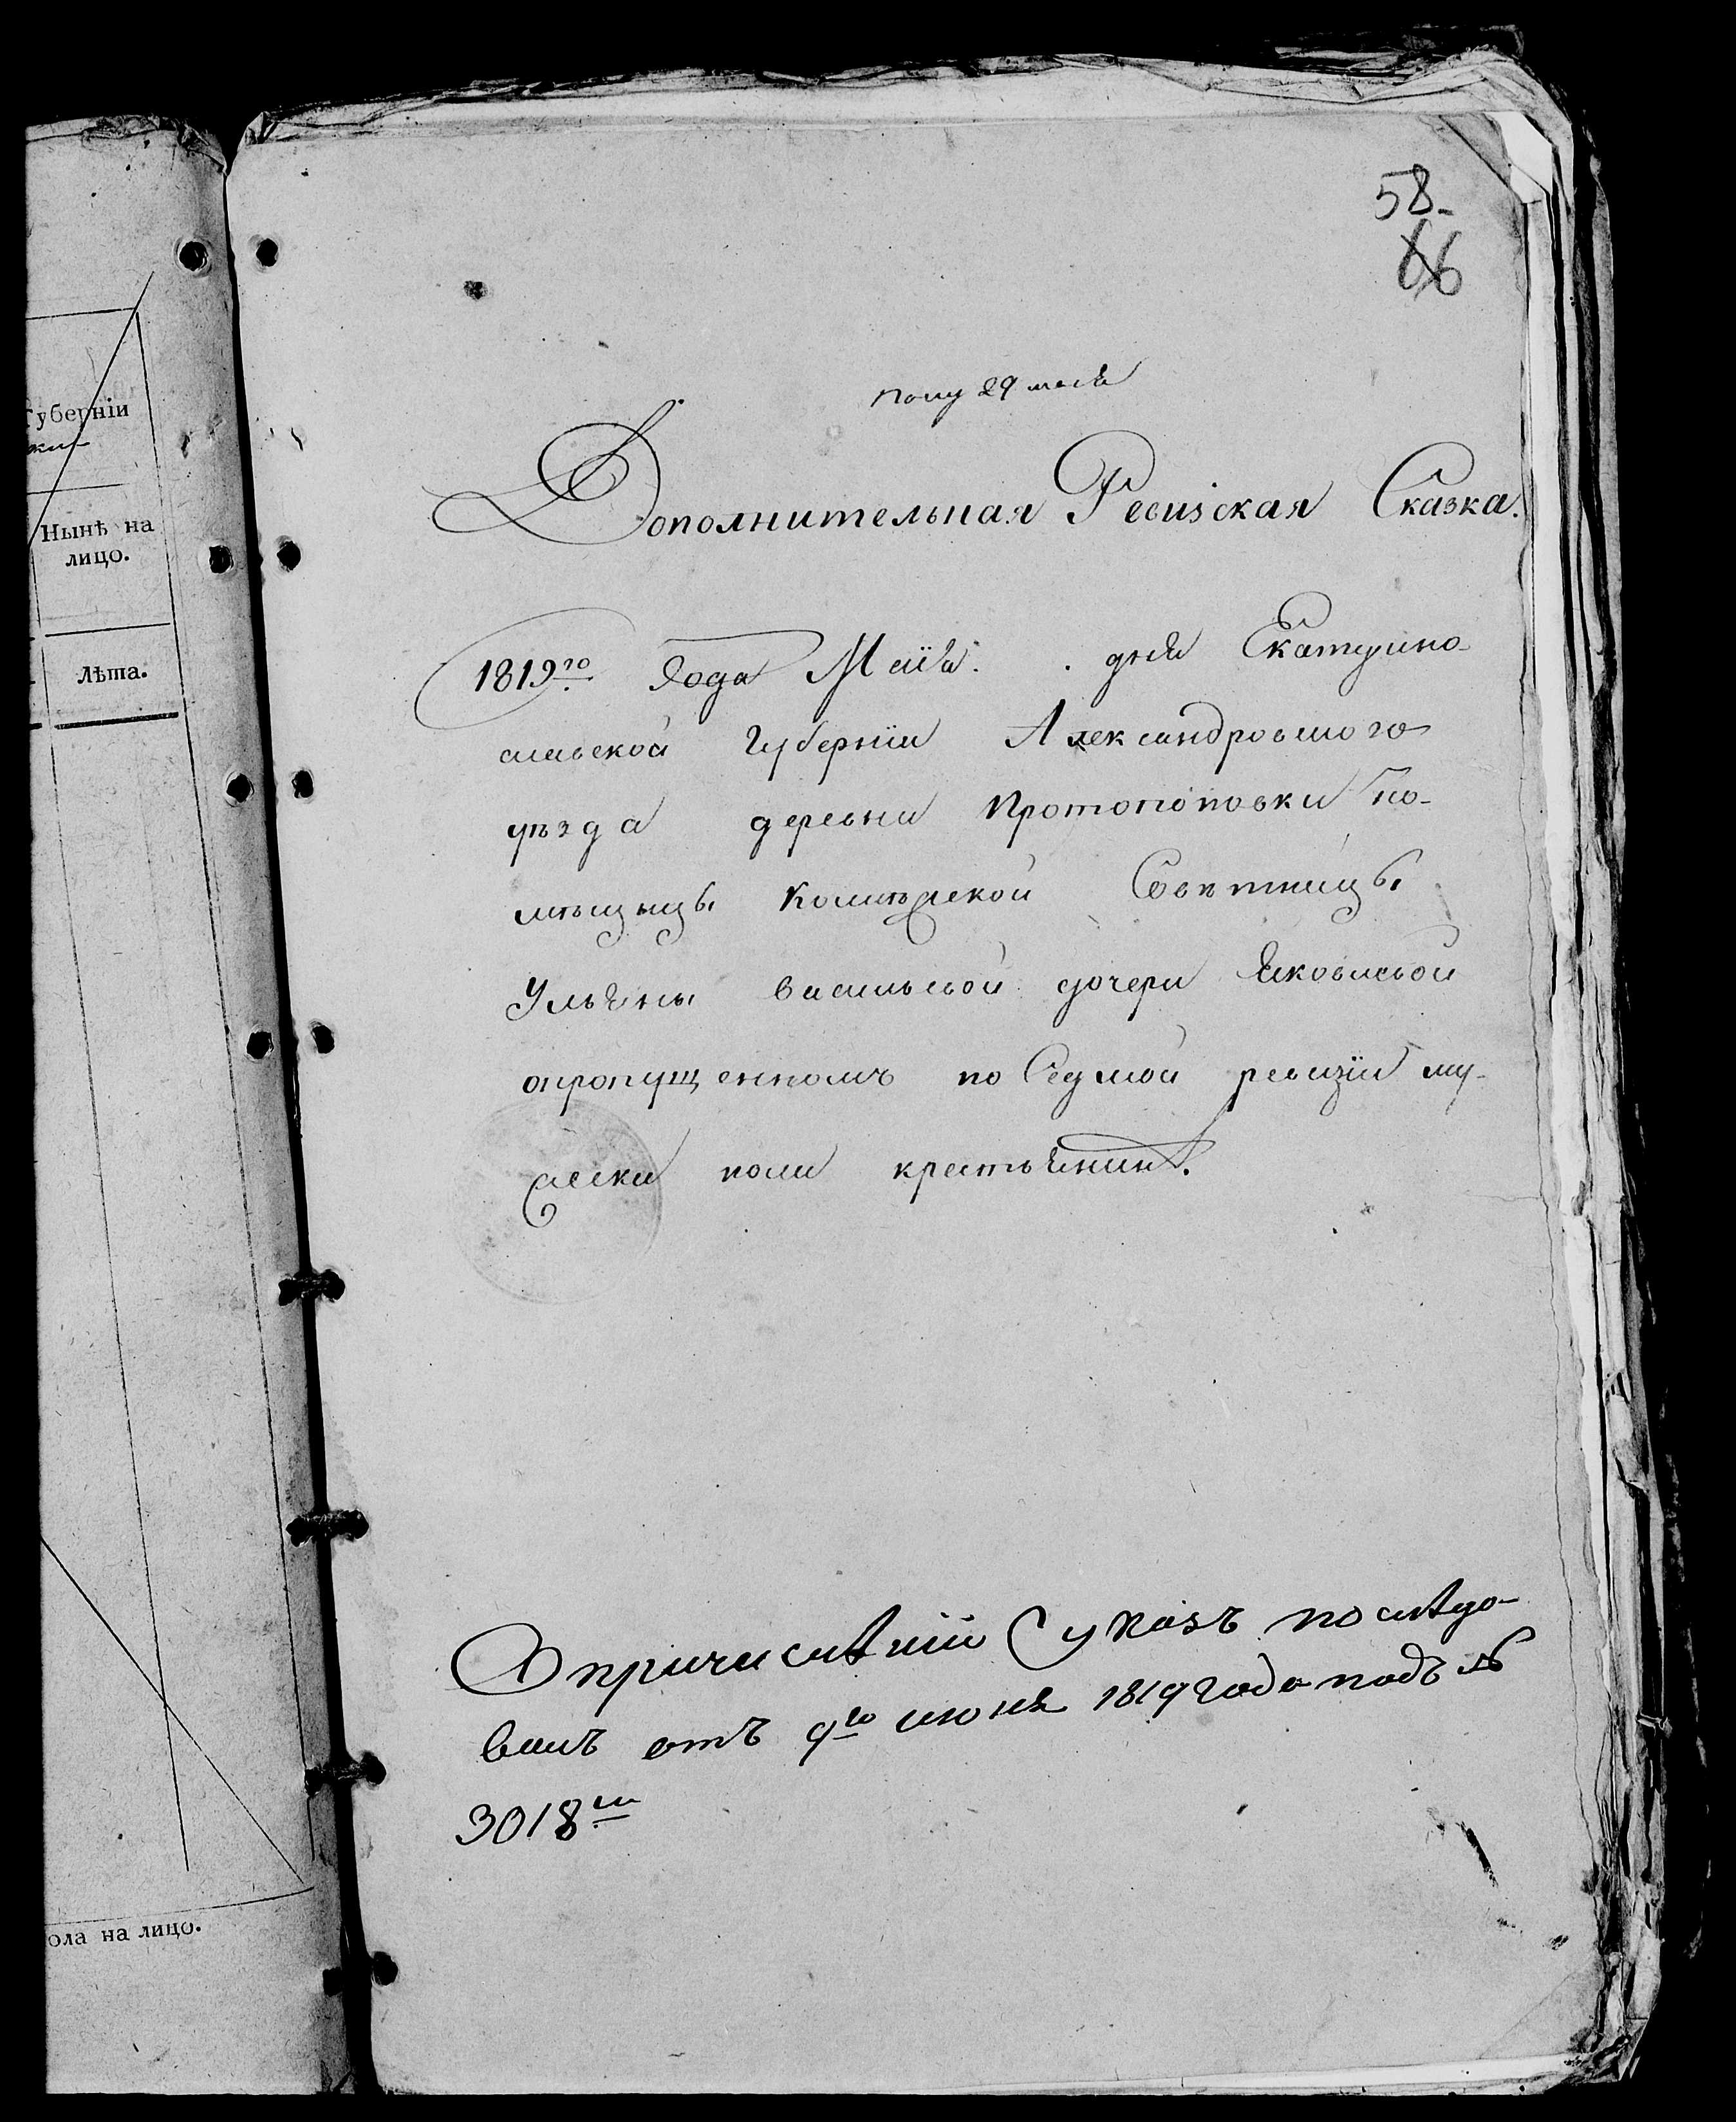 губерніи
Нынѣ на
лицо.
лѣта.
ола на лицо.
58
66
полу 29 маія
Дополнительная Ревизская Сказка.
1819го Года Маія. дня Екатерино-
славской Губерніи Александровского
уѣзда деревни Протопоповки по-
мѣщицы Колежской Совѣтницы
Ульяны васильевой дочери Яковлевой
опропущенномъ по Седмой ревизіи му-
жески полу крестьянин.
О причисленіи Сушествуказъ последо-
валъ отъ 9го июня 1819 года подъ №
3018м